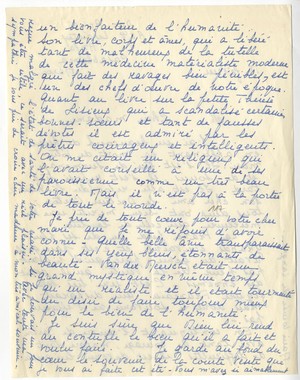 un bienfaiteur de l'humanité.
Son livre, corps et âmes, qui a libéré
tant de malheureux de la tutelle
de cette médecine matérialiste moderne
qui fait des ravages bien pénibles, est
un des chefs d'œuvre de notre époque.
Quant au livre sur la petite Thérèse
de Lisieux qui a scandalisé certaines
bonnes sœurs et tant de fausses
dévotes il est admiré par les
prêtres courageux et intelligents.
On me citait un religieux qui
l'avait conseillé à une de ses
paroissiennes comme un très beau
livre. Mais il n'est pas à la portée
de tout le monde.
Je prie de tout cœur pour votre cher
mari que je me réjouis d'avoir
connu. Quelle belle âme transparaissait
dans ses yeux bleus, étonnants de
beauté. Van der Meersch était un
grand mystique en même temps
qu'un réaliste et il était tourmenté
du désir de faire toujours mieux
pour le bien de l'humanité.
Je suis sûre que Dieu lui rend
au centuple le bien qu'il a fait et
voulu faire. Je garde au fond du
cœur le souvenir de la courte visite que
je vous ai faite cet été. Vous m'avez si aimablement
reçue malgré l'état de santé de votre